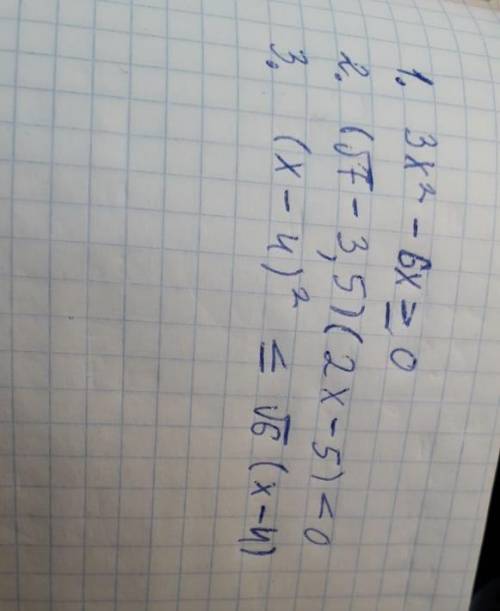 1. 3x² - 6x ≥ 0
2. (√7 - 3,5)(2x - 5) < 0
3. (x - 4)² ≤ √6 (x - 4)